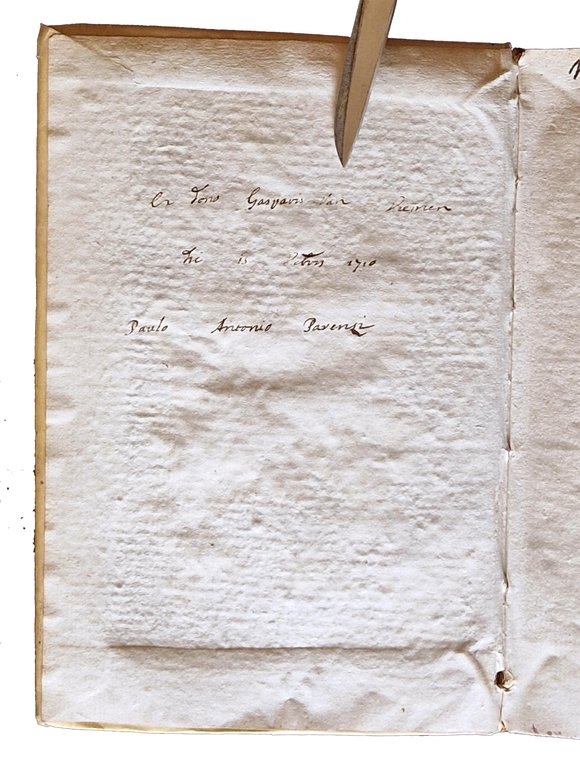 Ex dono Gasparis Van Viemen
die 15 Octobris 1710
Paulo Antonio Parensi